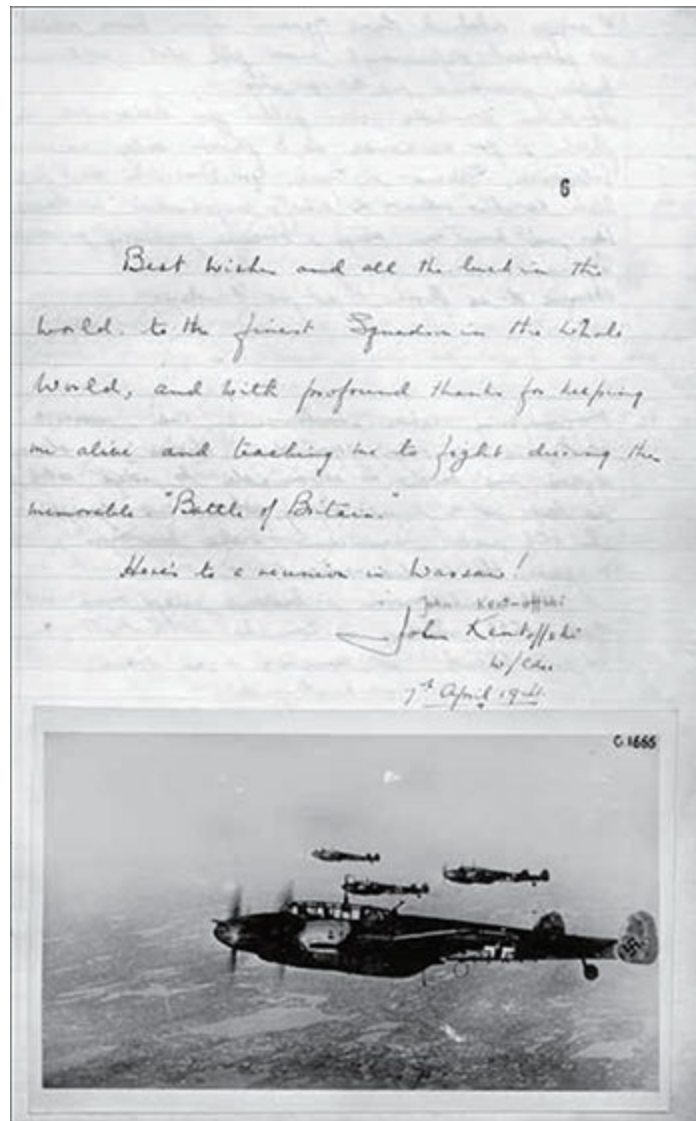 6
Best wishes and all the luck in the
world. to the finest Squadron in the whole
World, and with profound thanks for keeping
me alive and teaching me to fight during the
memorable "Battle of Britain."
Here's to a reunion in Warsaw!
John Kent-offski
John Kentoffski
W/Cdr
7th April 1941.
C.1665